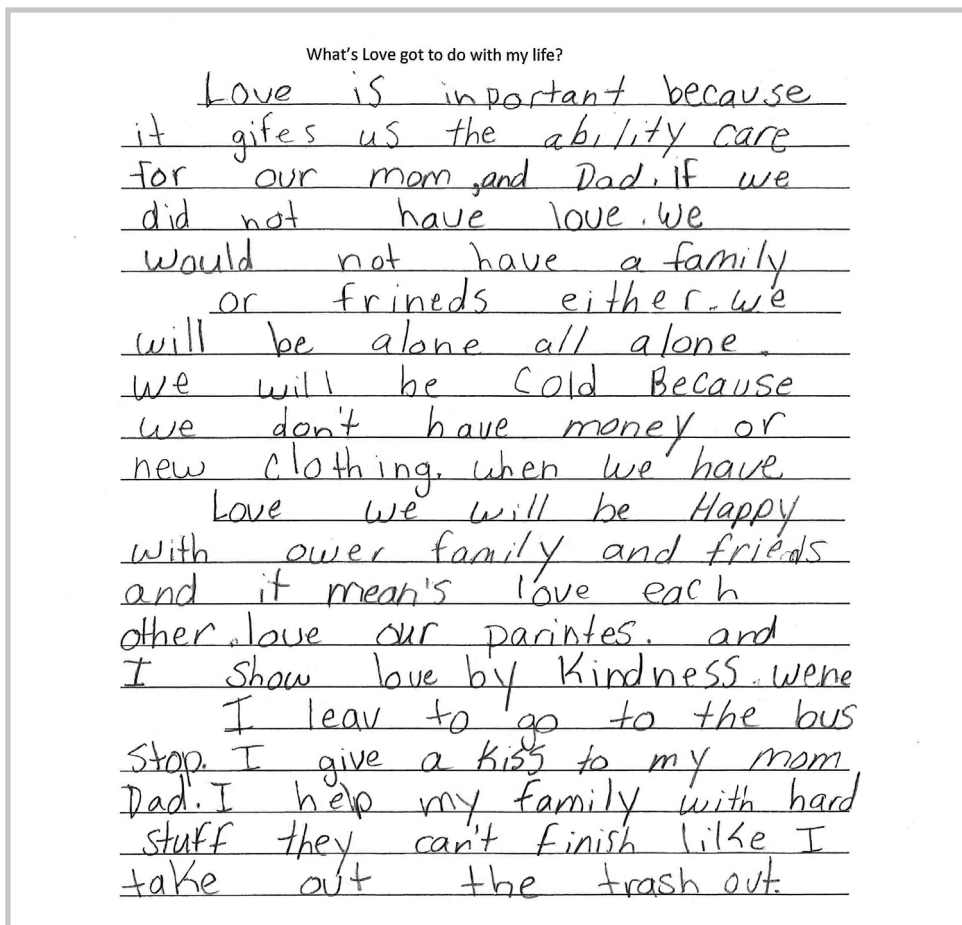 What's Love got to do with my life?
Love is inportant because
it gifes us the ability care
for our mom ,and Dad. if we
did not have love. We
would not have a family
or frineds either. we
will be alone all alone.
we will be Cold Because
we don't have money or
new clothing. when we have
Love we will be Happy
with ower family and frieds
and it mean's love each
other. love our parintes. and
I show love by Kindness. wene
I leav to go to the bus
stop. I give a kiss to my mom
Dad. I help my family with hard
stuff they can't finish lilke I
take out the trash out.